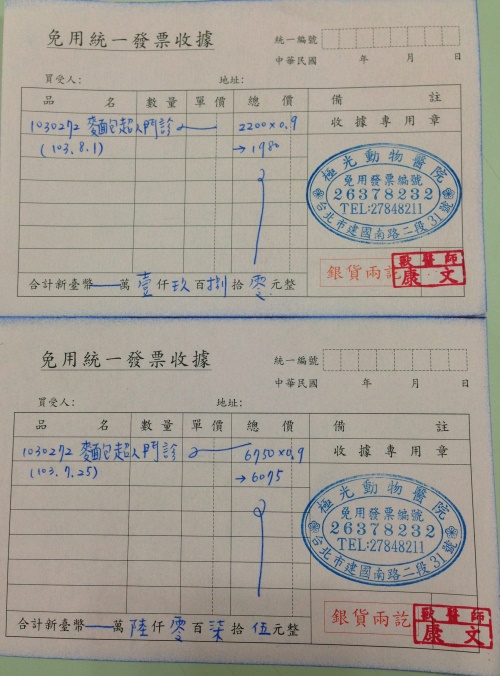 免用統一發票收據
統一編號
中華民國 年 月 日
買受人: 地址:
品 名 數量 單價 總 價 備 註
1030272 麵包超人門診 2200×0.9 收據專用章
(103.8.1) →1980
極光動物醫院
免用發票編號
26378232
TEL:27848211
台北市建國南路二段31號
銀貨兩訖
獸醫師
康文
合計新臺幣 萬壹仟玖百捌拾零元整
免用統一發票收據
統一編號
中華民國 年 月 日
買受人: 地址:
品 名 數量 單價 總 價 備 註
1030272 麵包超人門診 6750×0.9 收據專用章
(103.7.25) →6075
極光動物醫院
免用發票編號
26378232
TEL:27848211
台北市建國南路二段31號
銀貨兩訖
獸醫師
康文
合計新臺幣 萬陸仟零百柒拾伍元整